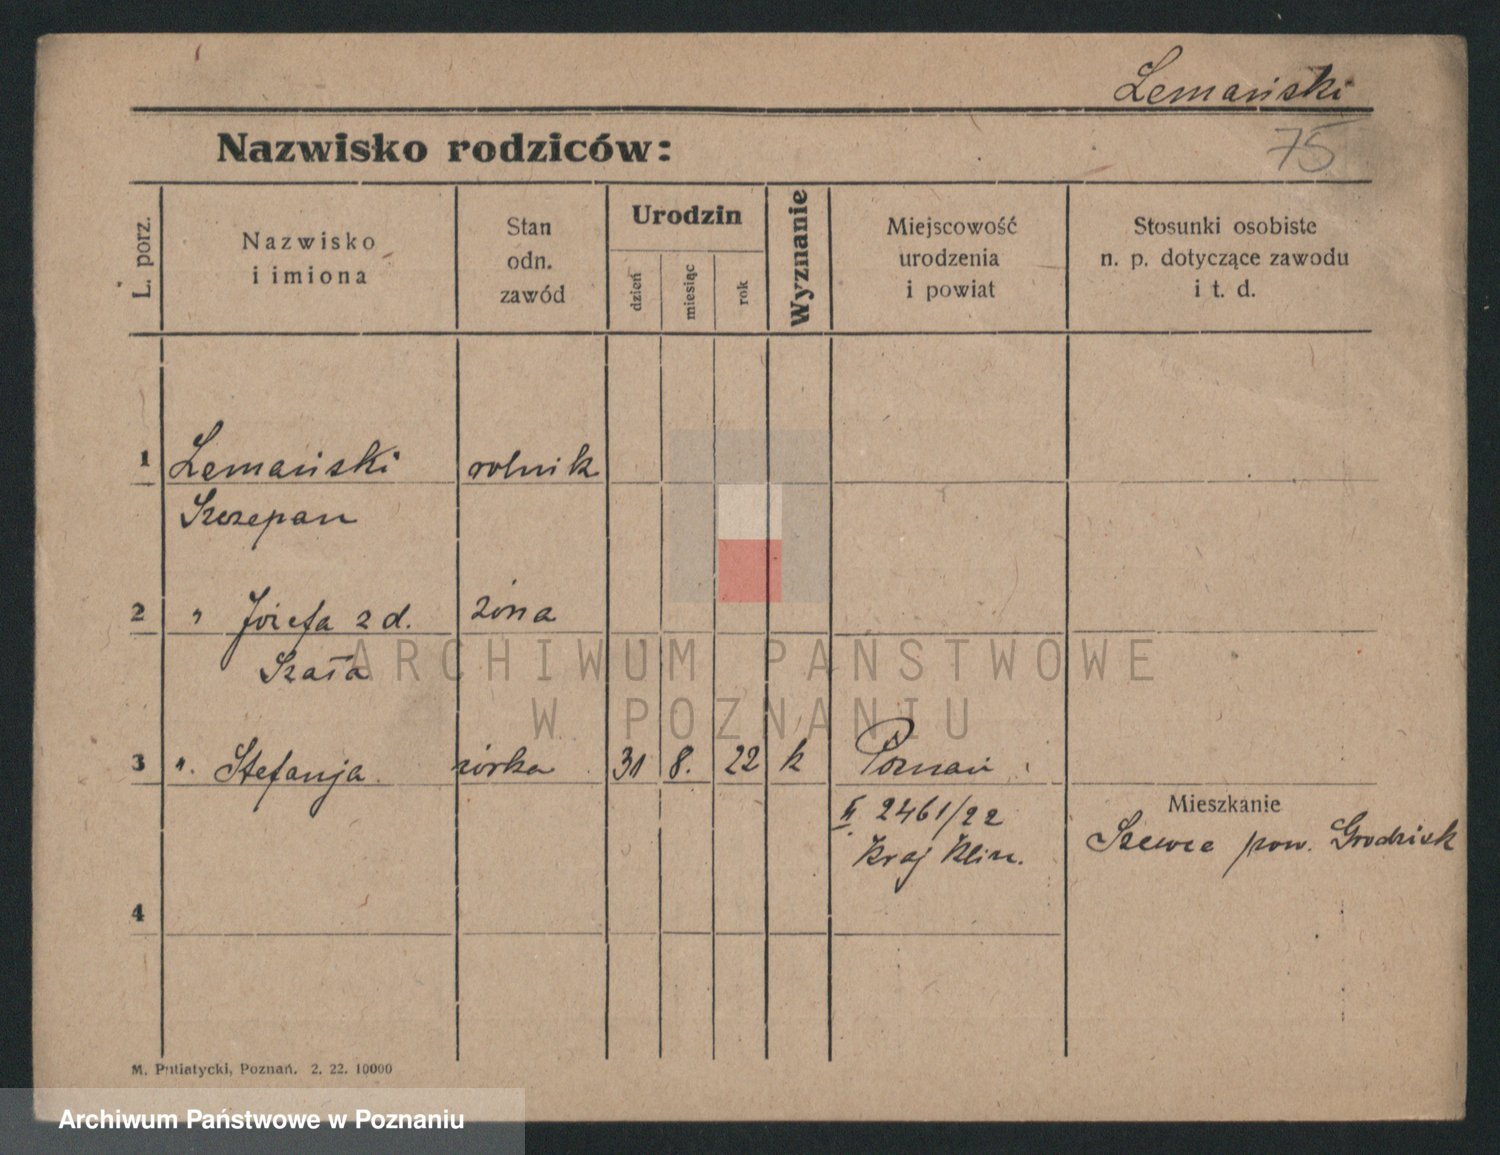 Lemański
75
Nazwisko rodziców:
L. porz.
Nazwisko
i imiona
Stan
odn.
zawód
Urodzin
dzień
miesiąc
rok
Wyznanie
Miejscowość
urodzenia
i powiat
Stosunki osobiste
n. p. dotyczące zawodu
i t. d.
1 Lemański rolnik
Szczepan
2 " Józefa z d. żona
Szała
ARCHIWUM PAŃSTWOWE
W POZNANIU
3 ". Stefanja córka 31 8. 22 k Poznań
Mieszkanie
II. 2461/22
Szewce pow. Grodzisk
Kraj Klin.
4
M. Putiatycki, Poznań. 2. 22. 10000
Archiwum Państwowe w Poznaniu